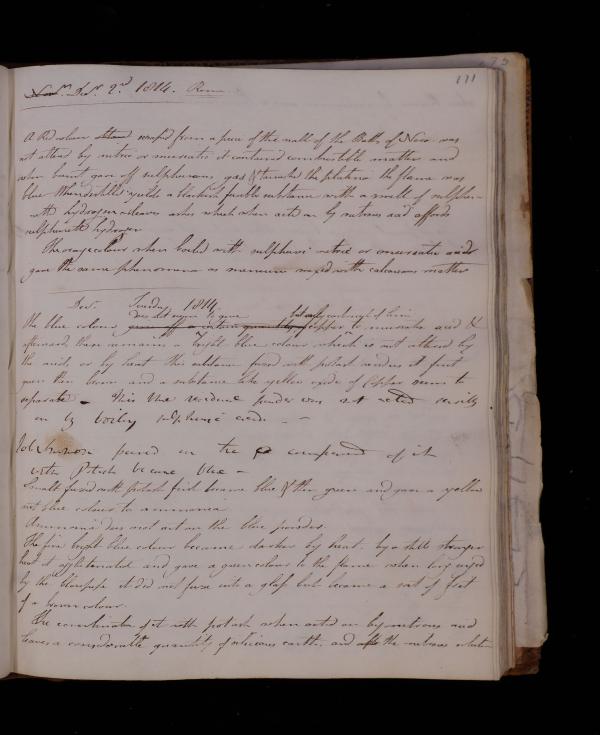 111
Decr. 2nd 1814. Rome
A Red colour scraped from a piece of the wall of the Baths of Nero was
not altered by nitric or muriatic it contained combustible matter and
when burnt gave off sulphureous gas & tarnished the platina the flame was
blue When distilled yields a blackish fusible substance with a smell of sulphur-
etted hydrogen & leaves ashes which when acted on by nitrous acid affords
sulphuretted hydrogen
The orange colour when boiled with sulphuric nitric or muriatic acids
gave the same phenomena as mixed with calcareous matter
Decr. Tuesday 1814
does not appear to give but only carbonate of lime
The blue colour gives off a certain quantity of copper to muriatic acid &
afterwards there remains a bright blue colour which is not altered by
the acid, or by heat this substance fused with potash renders it first
green then brown and a substance like yellow oxide of Copper seems to
separate - This blue residual powder was not acted
on by boiling sulphuric acid -
fused on the compound of it
with Potash became blue -
Smalt fused with potash first became blue & then green and gave a yellow
not blue colour to ammonia
Ammonia does not act on the blue powder.
The fine bright blue colour became darker by heat. by a still stronger
heat it agglutinated and gave a green colour to the flame when long urged
by the blowpipe it did not fuse into a glass but became a sort of frit
of a brown colour.
The combination of it with potash when acted on by nitrous acid
leaves a considerable quantity of silicious earth. and the nitrous solution